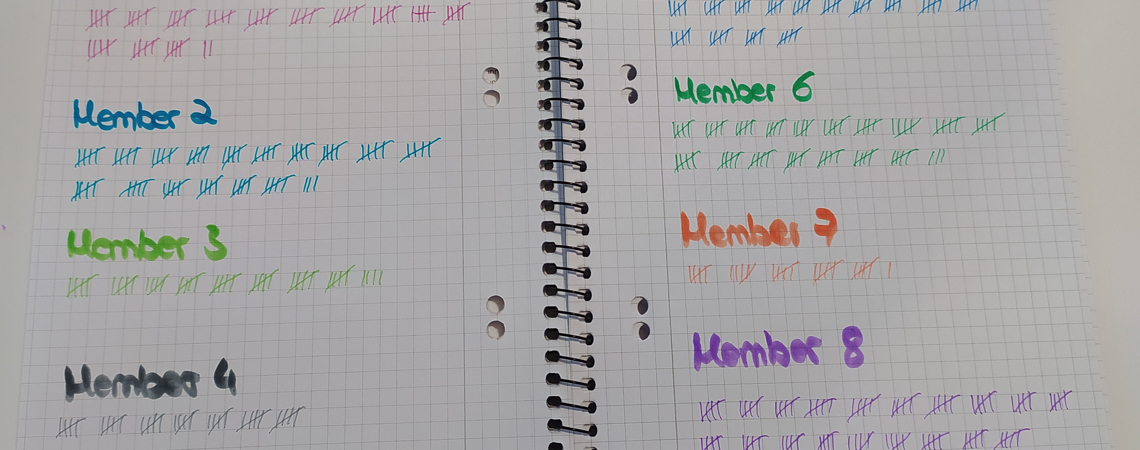 Member 2
Member 3
Member 4
Member 6
Member 7
Member 8